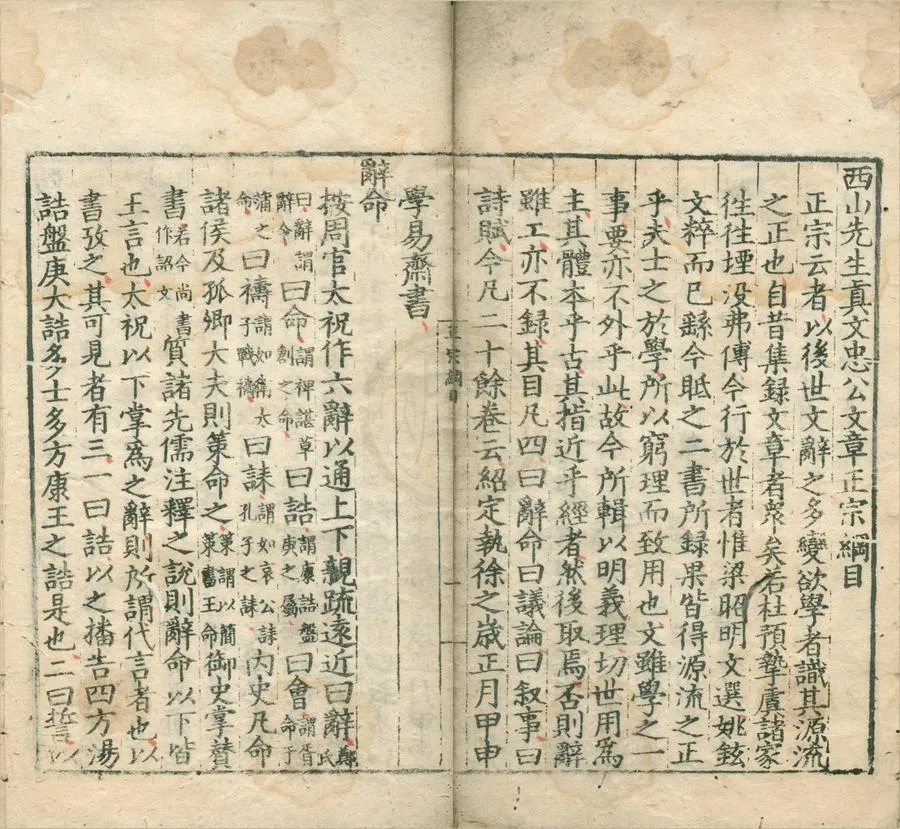 西山先生眞文忠公文章正宗綱目
正宗云者以後世文辭之多變欲學者識其源流
之正也自昔集録文章者衆矣若杜預摯虞諸家
徃徃堙没弗傳今行於世者惟梁昭明文選姚鉉
文粹而已繇今眡之二書所録果皆得源流之正
乎夫士之於學所以窮理而致用也文雖學之一
事要亦不外乎此故今所輯以明義理切世用爲
主其體本乎古其指近乎經者然後取焉否則辭
雖工亦不録其目凡四曰辭命曰議論曰叙事曰
詩賦今凡二十餘卷云紹定執徐之歳正月甲申
學易齋書
正宗綱目
一
辭命
按周官太祝作六辭以通上下親疏遠近曰辭鄭氏
曰辭謂辭令曰命謂禆諶草創之命曰誥謂康誥盤庚之屬曰會謂胥命于
蒲之命曰禱謂如衛太子戰禱曰誄謂如哀公誄孔子之誄内史凡命
諸侯及孤卿大夫則策命之策謂以簡策書王命御史掌贊
書若今尚書作詔文質諸先儒注釋之說則辭命以下皆
王言也太祝以下掌爲之辭則所謂代言者也以
書攷之其可見者有三一曰誥以之播告四方湯
誥盤庚大誥多士多方康王之誥是也二曰誓以